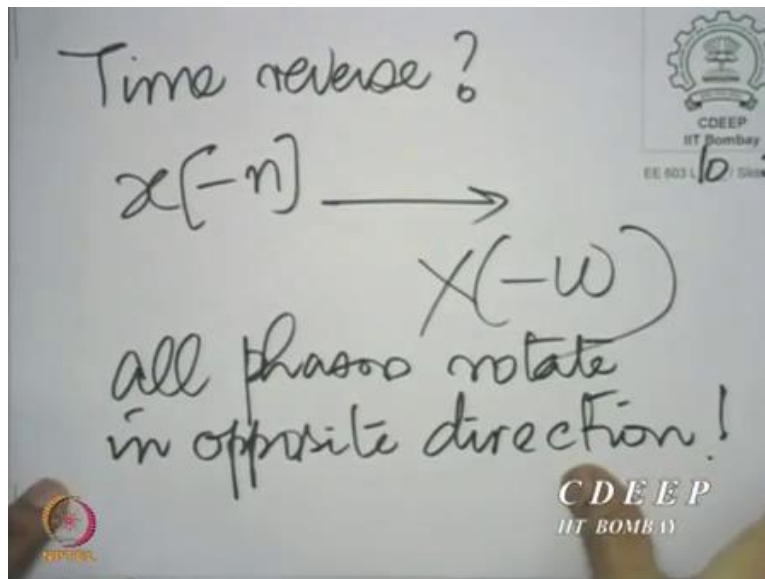 Time reverse?
CDEEP
IIT Bombay
x[-n] ⟶
EE 603 L 10 / Slide
X(-ω)
all phasors rotate
in opposite direction!
CDEEP
IIT BOMBAY
NPTEL